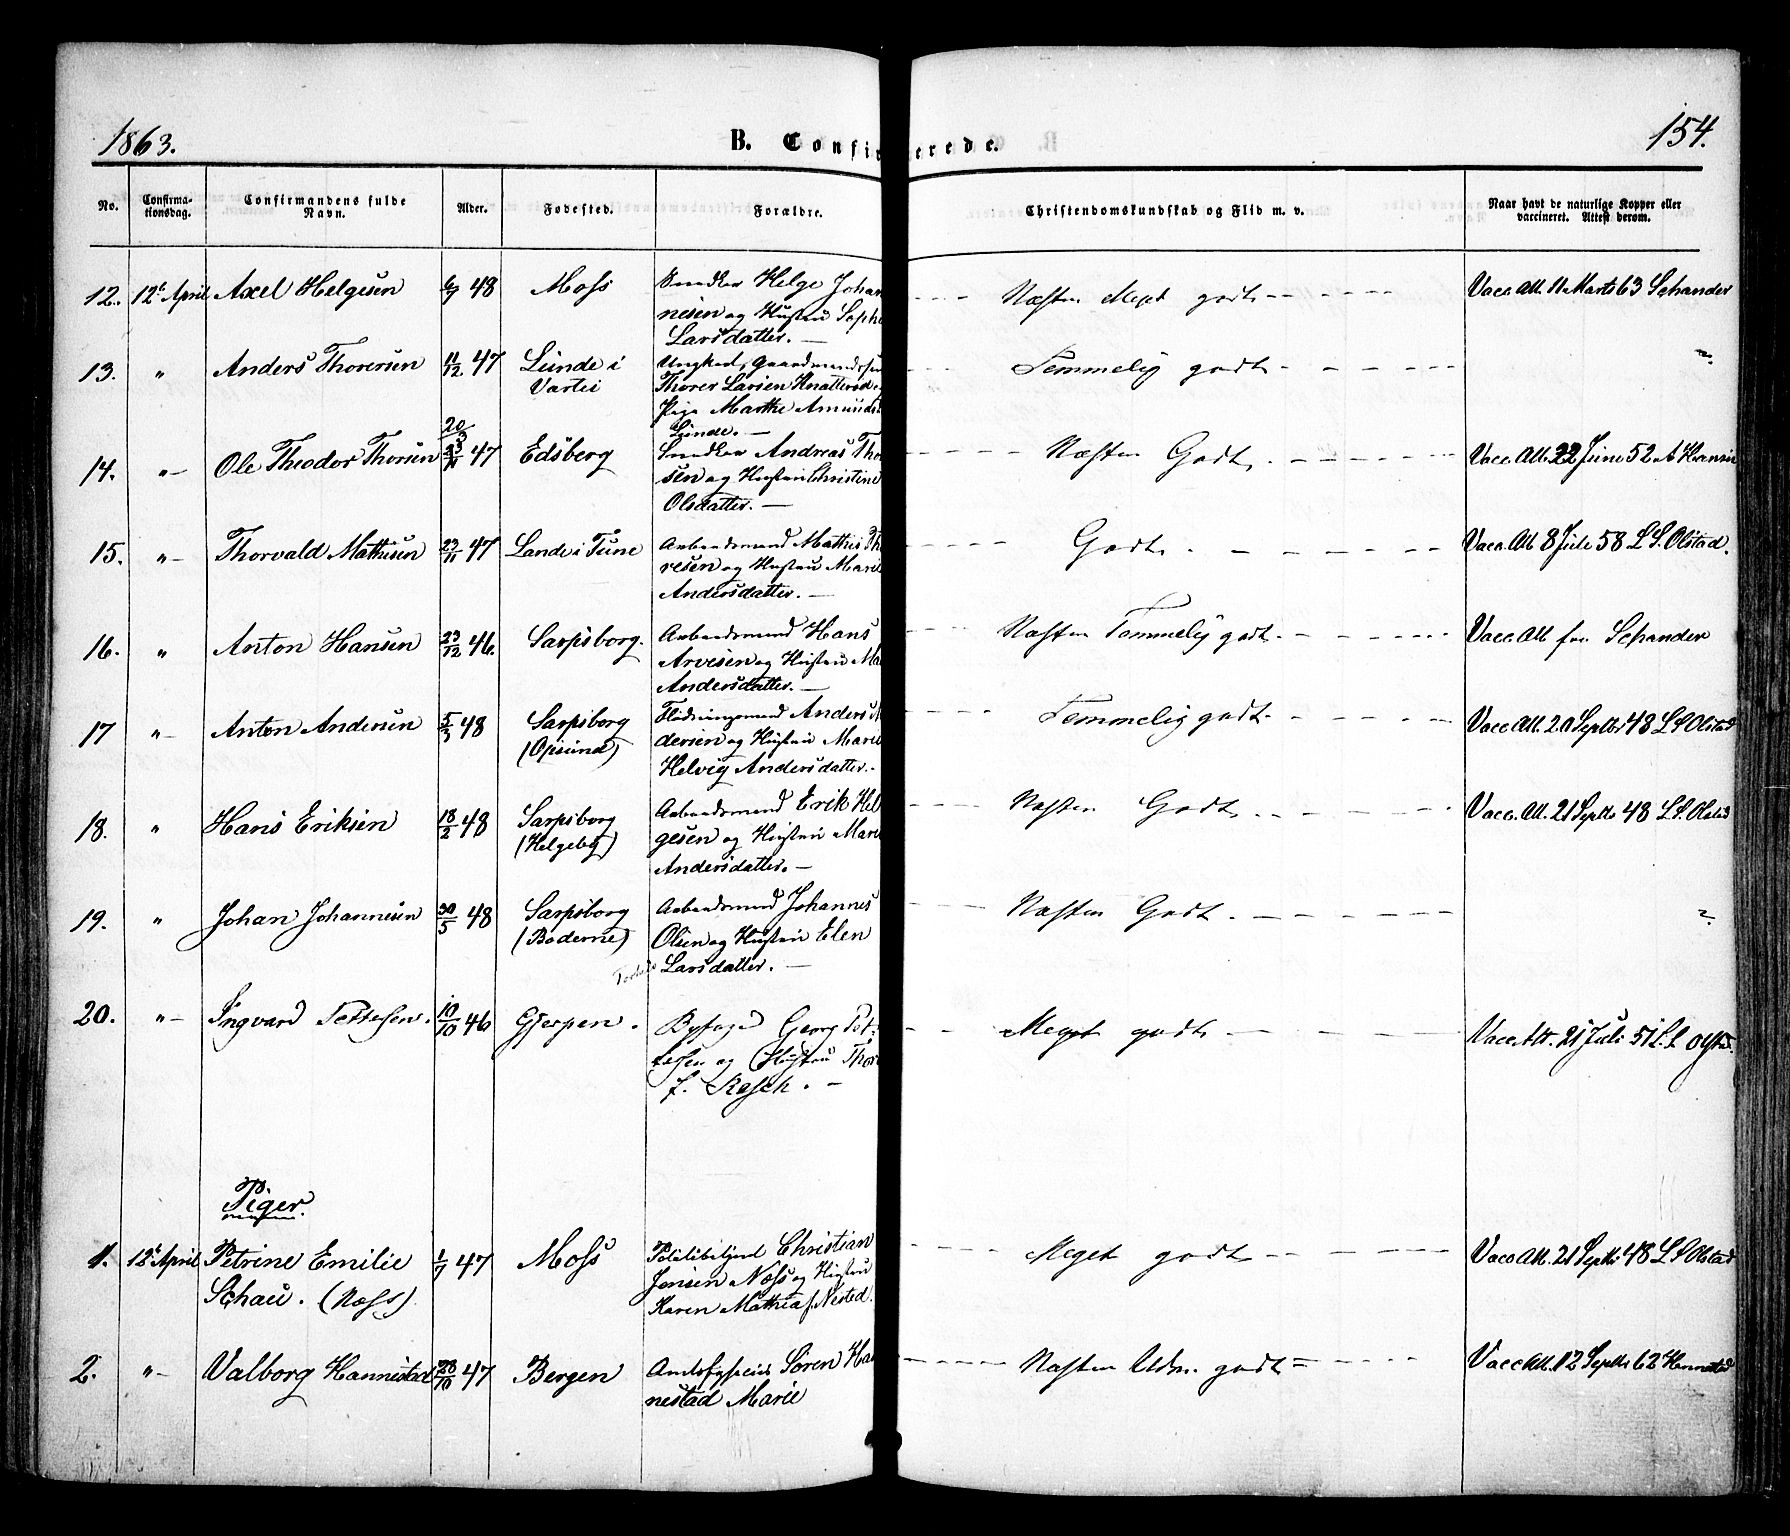 1863.
B. Confirmerede.
154.
No.
Confirma-
tionsdag.
Confirmandens fulde
Navn.
Alder.
Fødested.
Forældre.
Christendomskundskab og Flid m. v.
Naar havt de naturlige Kopper eller
vaccineret. Attest derom.
12. 12te April Axel Helgesen 6/9 48 Moss Snedker Helge Johan
nesen og Hustru Sophi
Larsdatter. —
Næsten Meget godt Vacc Att. 11 Marts 63 Schander
13. " Anders Thoresen 11/12 47 Lunde i
Vartei
Ungkarl, Gaardmandssøn
Thorer Larsen Knatterød
Pige Marthe Amunds
Lunde. —
Temmelig godt
14. " Ole Theodor Thorsen 20/3 23/11 47 Edsberg Snedker Andreas Tho
sen og Hustru Christine
Olsdatter. —
Næsten Godt. Vacc. Att. 22 Juni 52 A Hansen
15. " Thorvald Mathisen 23/11 47 Lande i Tune Arbeidsmand Mathis Th
resen og Hustru Marie
Andersdatter. —
Godt. Vacc. Att 8 Juli 58 L S. Olstad.
16. " Anton Hansen 23/12 46. Sarpsborg. Arbeidsmand Hans
Arvesen og Hustru Ma
Andersdatter. —
Næsten Temmelig godt. Vacc Att fra Schander
17 " Anton Andersen 5/3 48 Sarpsborg
(Opsund)
Flødningsmand Anders A
dersen og Hustru Marie
Helvig Andersdatter.
Temmelig godt Vacc Att. 20 Septbr 48 L S Olstad
18. " Hans Eriksen 18/2 48 Sarpsborg
(Helgeby)
Arbeidsmand Erik Hel
gesen og Hustru Marie
Andersdatter. —
Næsten Godt. Vacc. Att. 21 Septbr 48 L S. Olstad
19. " Johan Johannesen 30/5 48 Sarpsborg
(Boderne)
Arbeidsmand Johannes
Olsen og Hustru Elen
Larsdatter. —
Næsten Godt.
20. " Ingvard Pettersen. 10/10 46 Gjerpen. Byfoged Georg Pet-
tersen og Hustru Thor
f. Rasch. —
Meget godt. Vacc Att. 21 Juli 51 L. S Olstad.
Piger.
1. 12te April Petrine Emilie
Schau. (Næss)
1/7 47 Moss Politibetjent Christian
Jensen Næss og Hustru
Karen Mathea f. Nested.
Meget godt Vacc Att. 21 Septbr 48 L S Olstad
2. " Valborg Hannestad 28/10 47 Bergen Amtsfysicus Søren Han
nestad Marie
Næsten Udm. godt Vacc Att. 12 Septbr 62 Hannestad